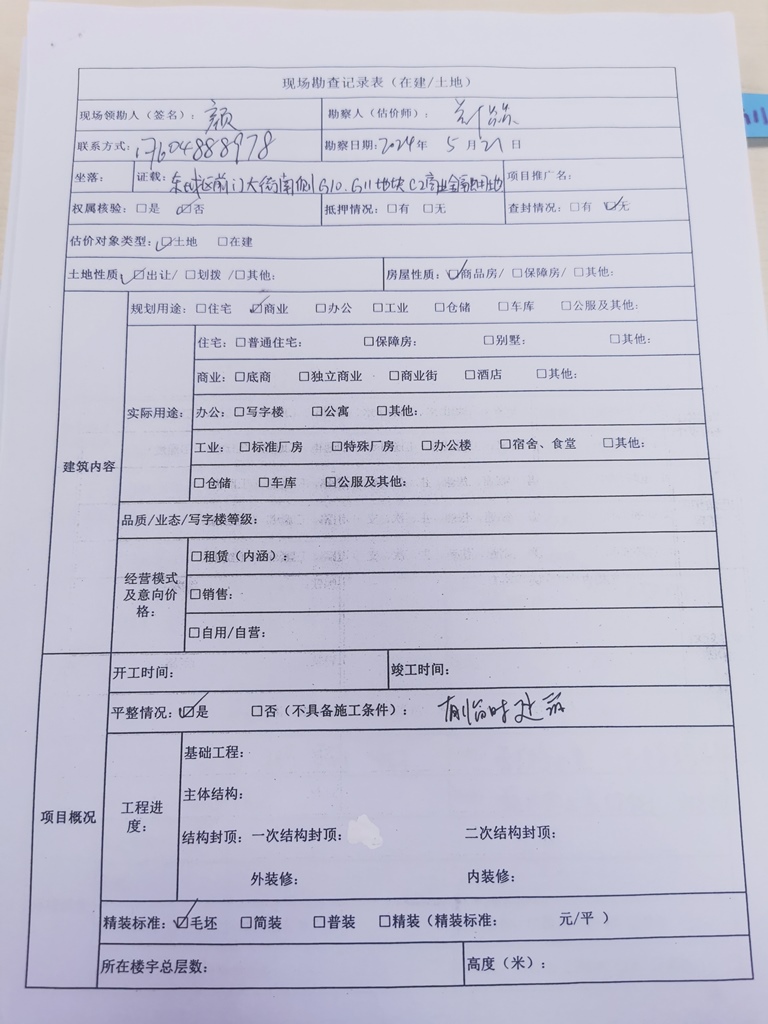 现场勘查记录表（在建/土地）
现场领勘人（签名）：颜 勘察人（估价师）：
联系方式：17604888978 勘察日期：2024年 5 月 21 日
坐落： 证载：东城区前门大街南侧G10.G11地块C2商业金融用地 项目推广名：
权属核验：□是 ☑否 抵押情况：□有 □无 查封情况：□有 ☑无
估价对象类型：☑土地 □在建
土地性质：☑出让/ □划拨 /□其他： 房屋性质：☑商品房/ □保障房/ □其他：
建筑内容
规划用途：□住宅 ☑商业 □办公 □工业 □仓储 □车库 □公服及其他：
实际用途：
住宅：□普通住宅： □保障房： □别墅： □其他：
商业：□底商 □独立商业 □商业街 □酒店 □其他：
办公：□写字楼 □公寓 □其他：
工业：□标准厂房 □特殊厂房 □办公楼 □宿舍、食堂 □其他：
□仓储 □车库 □公服及其他：
品质/业态/写字楼等级：
经营模式
及意向价
格：
□租赁（内涵）：
□销售：
□自用/自营：
项目概况
开工时间： 竣工时间：
平整情况：☑是 □否（不具备施工条件）： 有临时建筑
工程进
度：
基础工程：
主体结构：
结构封顶：一次结构封顶： 二次结构封顶：
外装修： 内装修：
精装标准：☑毛坯 □简装 □普装 □精装（精装标准： 元/平 ）
所在楼宇总层数： 高度（米）：